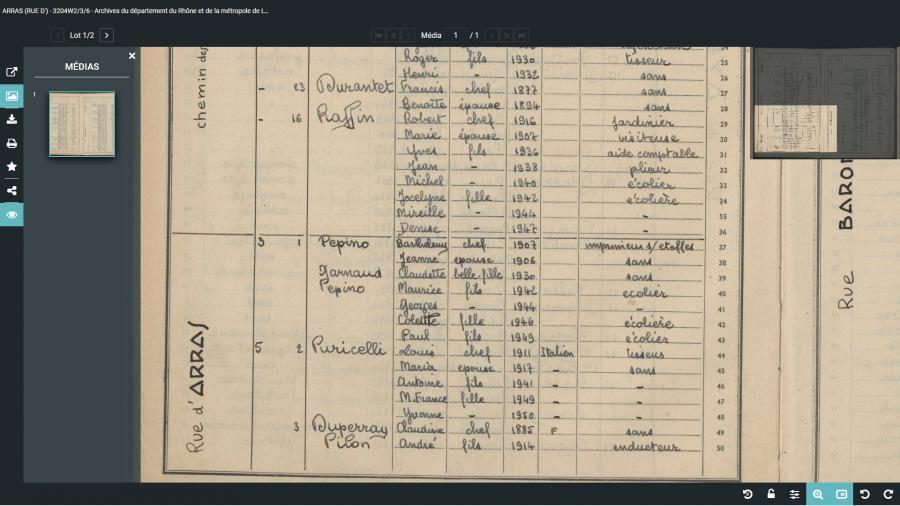 ARRAS (RUE D') - 3204W2/3/6 - Archives du département du Rhône et de la métropole de l...
Lot 1/2
Média 1 / 1
MÉDIAS
1
chemin des
Roger fils 1930 tisseur 25
Henri - 1932 sans 26
- 23 Durantet Francis chef 1877 sans 27
Benoite épouse 1894 sans 28
- 16 Raffin Robert chef 1916 jardinier 29
Marie épouse 1907 visiteuse 30
Yves fils 1936 aide comptable 31
Jean - 1938 plieur 32
Michel - 1940 écolier 33
Jocelyne fille 1942 écolière 34
Mireille - 1944 - 35
Denise - 1947 - 36
Rue d'ARRAS
3 1 Pepino Barthélemy chef 1907 imprimeur s/ étoffes 37
Jeanne epouse 1906 sans 38
Jarnaud Claudette belle-fille 1930 sans 39
Pepino Maurice fils 1942 ecolier 40
Georges - 1944 - 41
Colette fille 1946 écolière 42
Paul fils 1949 écolier 43
5 2 Puricelli Louis chef 1911 Italien tisseur 44
Maria epouse 1917 - sans 45
Antoine fils 1941 - - 46
M. France fille 1949 - - 47
Yvonne - 1950 - - 48
3 Duperray Claudine chef 1885 F sans 49
Pilon André fils 1914 enducteur 50
Rue BARON